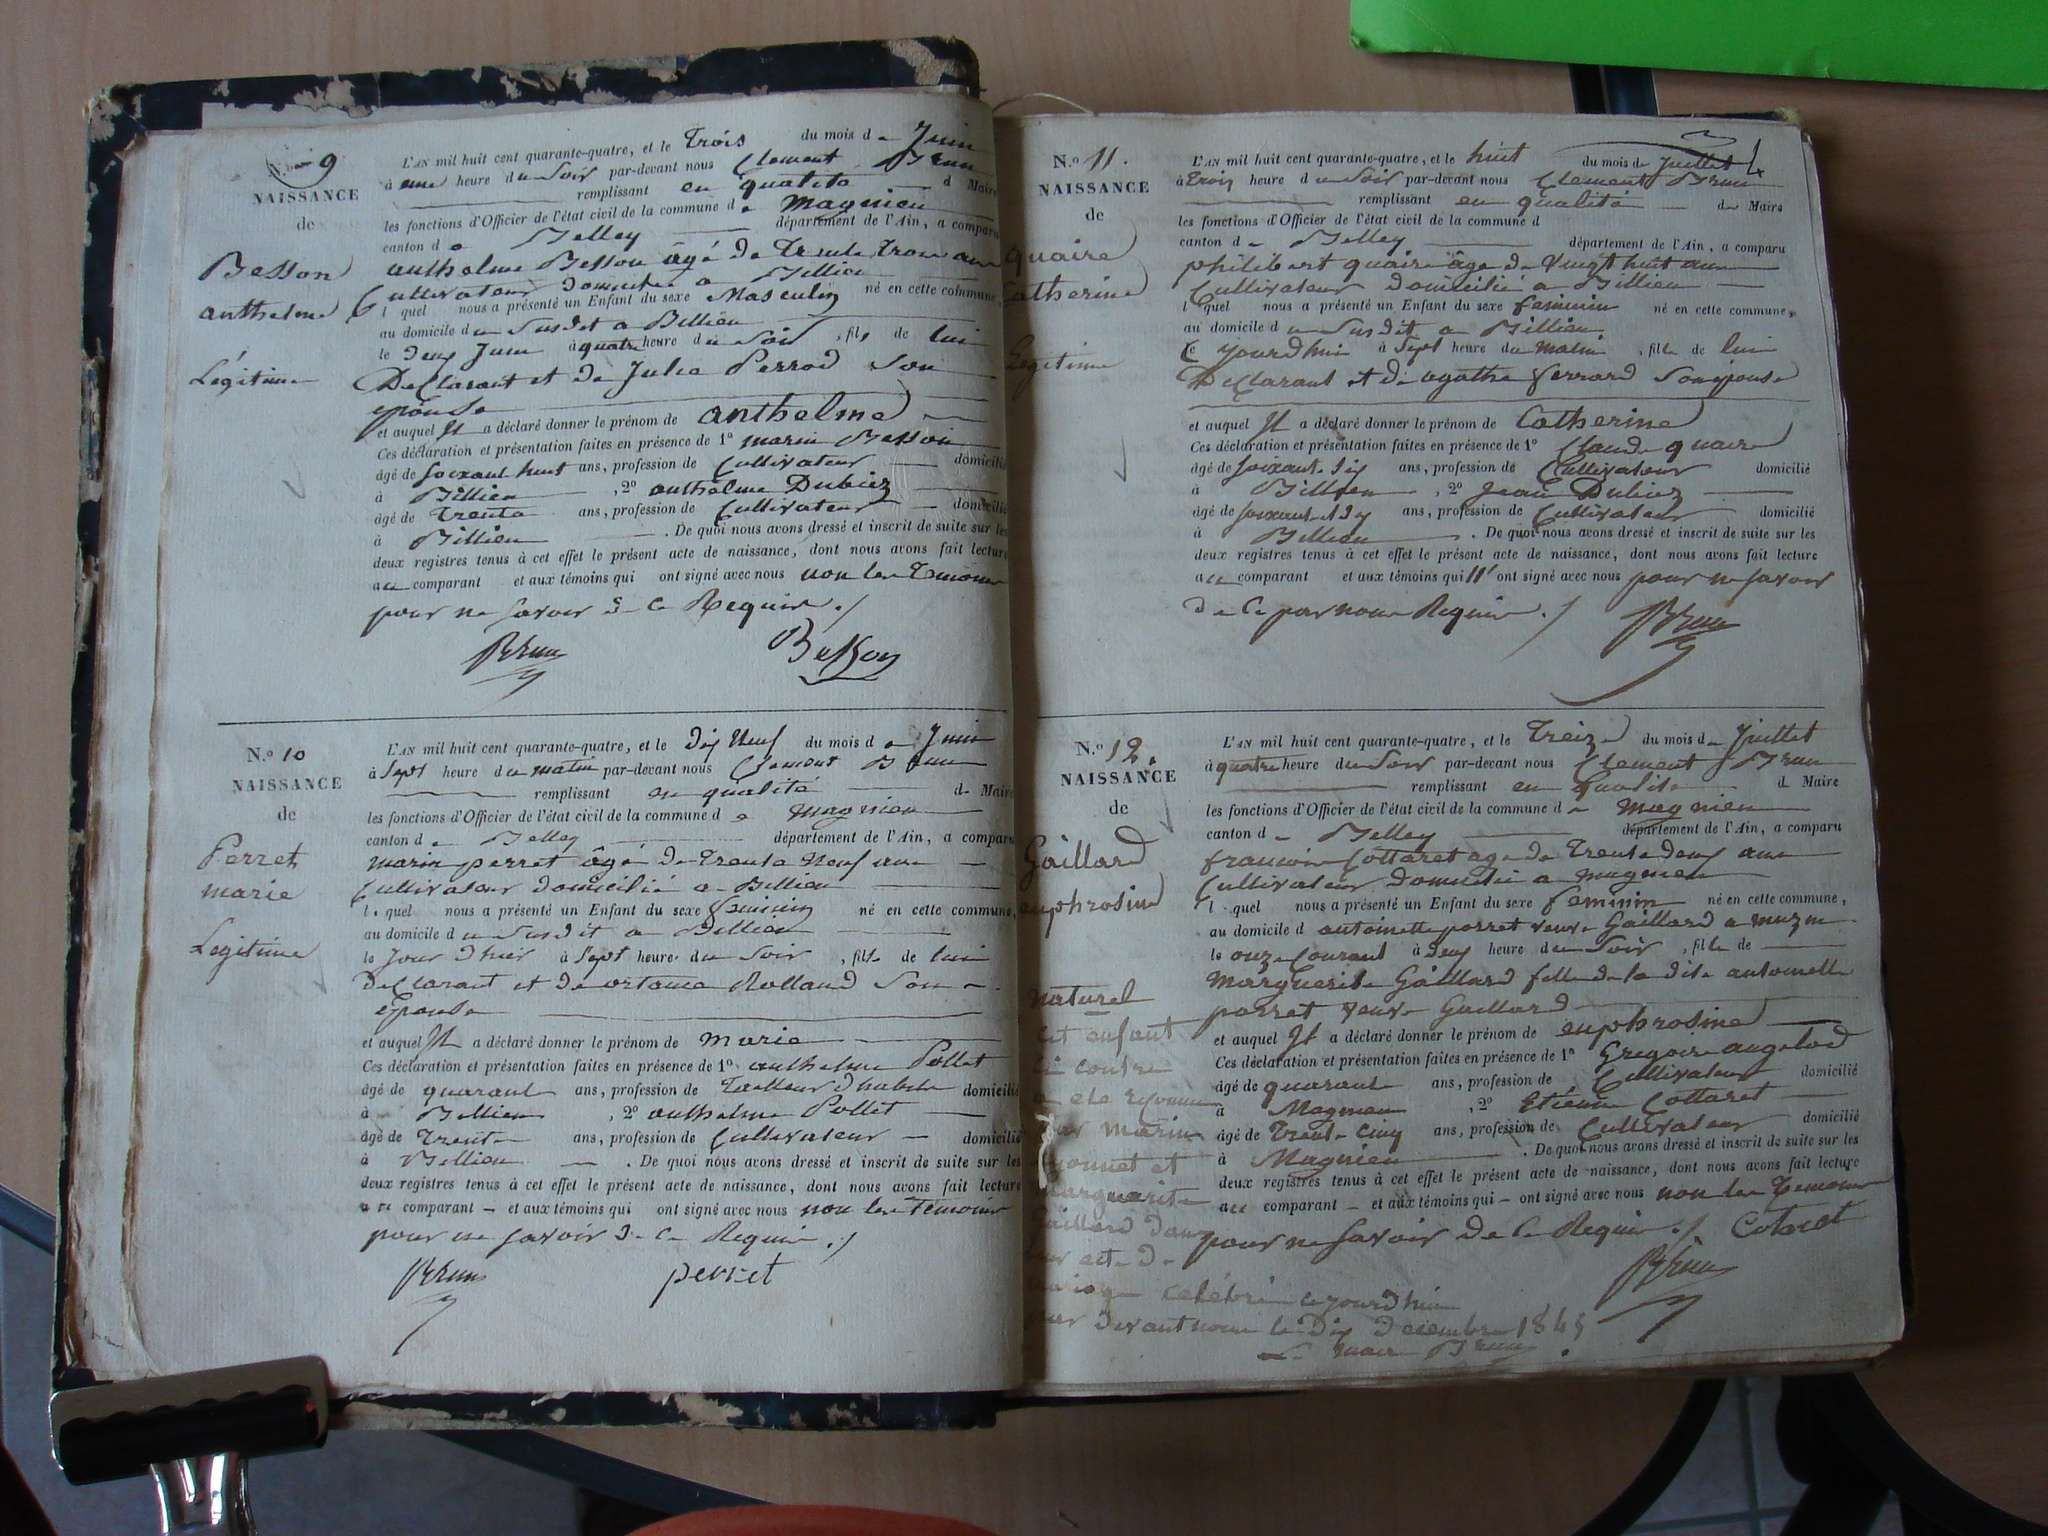 N.o 9
NAISSANCE
de
Besson
anthelme
Légitime
L'AN mil huit cent quarante-quatre, et le Trois du mois de Juin
à une heure du Soir par-devant nous Clement Brun
remplissant en qualité d Maire
les fonctions d'Officier de l'état civil de la commune de Magnieu
canton de Belley département de l'Ain, a comparu
anthelme Besson âgé de trente trois ans
Cultivateur domicilié a Billieu
lequel nous a présenté un Enfant du sexe Masculin né en cette commune,
au domicile du Susdit a Billieu
le deux Juin à quatre heure du Soir, fils de lui
Declarant et de Julie Perrod Son
epouse
et auquel Il a déclaré donner le prénom de anthelme
Ces déclaration et présentation faites en présence de 1o marin Besson
âgé de Soixant huit ans, profession de Cultivateur domicilié
à Billieu, 2o anthelme Dubiez
âgé de Trente ans, profession de Cultivateur domicilié
à Billieu. De quoi nous avons dressé et inscrit de suite sur les
deux registres tenus à cet effet le présent acte de naissance, dont nous avons fait lecture
au comparant et aux témoins qui ont signé avec nous non les Temoins
pour ne Savoir de Ce Requis ./
Brun Besson
N.o 10
NAISSANCE
de
Perret
marie
Legitime
L'AN mil huit cent quarante-quatre, et le dix Neuf du mois de Juin
à Sept heure du matin par-devant nous Clement Brun
remplissant en qualité de Maire
les fonctions d'Officier de l'état civil de la commune de magnieu
canton de Belley département de l'Ain, a comparu
marin perret âgé de trente Neuf ans
Cultivateur domicilié a Billieu
lequel nous a présenté un Enfant du sexe feminin né en cette commune,
au domicile du Susdit a Billieu
le Jour d'hier à Sept heure du Soir, fille de lui
Declarant et de ortance Rolland Son
Epouse
et auquel Il a déclaré donner le prénom de marie
Ces déclaration et présentation faites en présence de 1o anthelme Pollet
âgé de quarante ans, profession de Tailleur d'habit domicilié
à Billieu, 2o anthelme Pollet
âgé de Trente ans, profession de Cultivateur domicilié
à Billieu. De quoi nous avons dressé et inscrit de suite sur les
deux registres tenus à cet effet le présent acte de naissance, dont nous avons fait lecture
au comparant et aux témoins qui ont signé avec nous non les Temoins
pour ne Savoir de Ce Requis ./
Brun perret
4
N.o 11.
NAISSANCE
de
quaire
Catherine
Legitime
L'AN mil huit cent quarante-quatre, et le huit du mois de Juillet
à trois heure du Soir par-devant nous Clement Brun
remplissant en qualité de Maire
les fonctions d'Officier de l'état civil de la commune d
canton de Belley département de l'Ain, a comparu
philibert quaire âgé de vingt huit ans
Cultivateur domicilié a Billieu
lequel nous a présenté un Enfant du sexe feminin né en cette commune,
au domicile du Susdit a Billieu
Ce jourd'hui à Sept heure du Matin, fille de lui
Declarant et de agathe ferrard Son epouse
et auquel Il a déclaré donner le prénom de Catherine
Ces déclaration et présentation faites en présence de 1o Claude quaire
âgé de Soixant dix ans, profession de Cultivateur domicilié
à Billieu, 2o Jean Dubiez
âgé de Soixant et dix ans, profession de Cultivateur domicilié
à Billieu. De quoi nous avons dressé et inscrit de suite sur les
deux registres tenus à cet effet le présent acte de naissance, dont nous avons fait lecture
au comparant et aux témoins qui n' ont signé avec nous pour ne Savoir
de Ce par nous Requis ./ Brun
N.o 12.
NAISSANCE
de
Gaillard
euphrosine
naturel
cet enfant
ci contre
a ete reconnu
par marin
et
Marguerite
Gaillard dans
leur acte de
mariage celébré cejourd'hui
par devant nous le Dix Decembre 1845
Le maire Brun
L'AN mil huit cent quarante-quatre, et le Treize du mois de Juillet
à quatre heure du Soir par-devant nous Clement Brun
remplissant en qualité d Maire
les fonctions d'Officier de l'état civil de la commune de magnieu
canton de Belley département de l'Ain, a comparu
francois Cottaret age de Trente deux ans
Cultivateur domicilié a magnieu
lequel nous a présenté un Enfant du sexe feminin né en cette commune,
au domicile d antoinette porret veuve Gaillard a muzin
le onze Courant à deux heure du Soir, fille de
Marguerite Gaillard fille de la dite antoinette
porret veuve Gaillard
et auquel Il a déclaré donner le prénom de euphrosine
Ces déclaration et présentation faites en présence de 1o Gregoire
âgé de quarante ans, profession de Cultivateur domicilié
à Magnieu, 2o Etienne Cottaret
âgé de Trente Cinq ans, profession de Cultivateur domicilié
à Magnieu. De quoi nous avons dressé et inscrit de suite sur les
deux registres tenus à cet effet le présent acte de naissance, dont nous avons fait lecture
au comparant et aux témoins qui ont signé avec nous non les Temoins
pour ne Savoir de Ce Requis ./ Cotaret
Brun